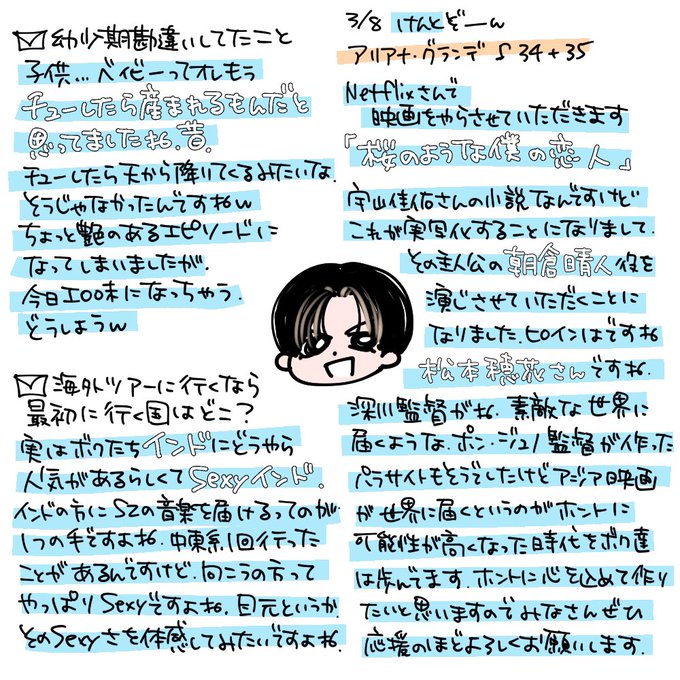 3/8 けんとどーん
アリアナ・グランデ ♪ 34+35
Netflixさんで
映画をやらさせていただきます
「桜のような僕の恋人」
宇山佳佑さんの小説なんですけど
これが実写化することになりまして.
その主人公の朝倉晴人役を
演じさせていただくことに
なりました.ヒロインはですね
松本穂花さんですね.
深川監督がね.素敵な世界に
届くような.ポン・ジュノ監督が作った
パラサイトもそうでしたけどアジア映画
が世界に届くというのがホントに
可能性が高くなった時代をボク達
は歩んでます.ホントに心を込めて作り
たいと思いますのでみなさんぜひ
応援のほどよろしくお願いします.
幼少期勘違いしてたこと
子供…ベイビーってオレもう
チューしたら産まれるもんだと
思ってましたね.昔.
チューしたら天から降りてくるみたいな.
そうじゃなかったんですねw
ちょっと艶のあるエピソードに
なってしまいましたが.
今日エロ味になっちゃう.
どうしようw
海外ツアーに行くなら
最初に行く国はどこ?
実はボクたちインドにどうやら
人気があるらしくてSexyインド.
インドの方にSZの音楽を届けるってのが
1つの手ですよね.中東系1回行った
ことがあるんですけど.向こうの方って
やっぱりSexyですよね.目元というか
そのSexyさを体感してみたいですよね.